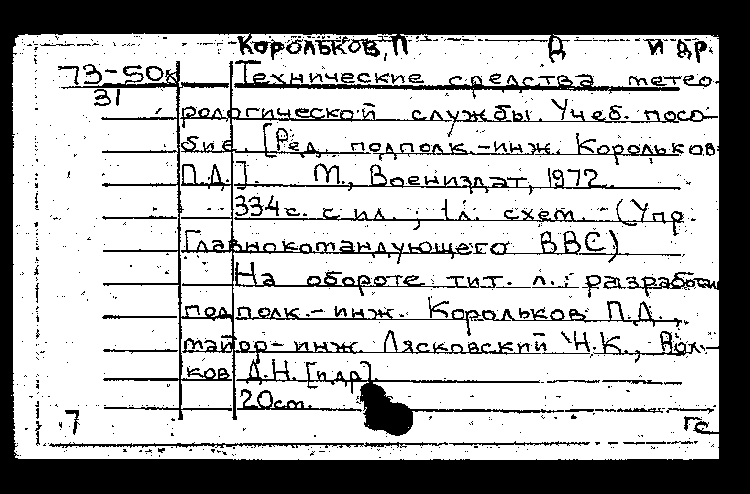 Корольков, П Д и др.
73-50к Технические средства метео-
31
рологической службы. Учеб. посо-
бие. [Ред. подполк.-инж. Корольков
П.Д.]. М., Воениздат, 1972.
334с. с ил.; 1л. схем. - (Упр.
Главнокомандующего ВВС)
На обороте тит. л.: разработчики
подполк.-инж. Корольков П.Д.,
майор-инж. Лясковский Н.К., Вол-
ков Д.Н. [и др]
20см.
7 гс